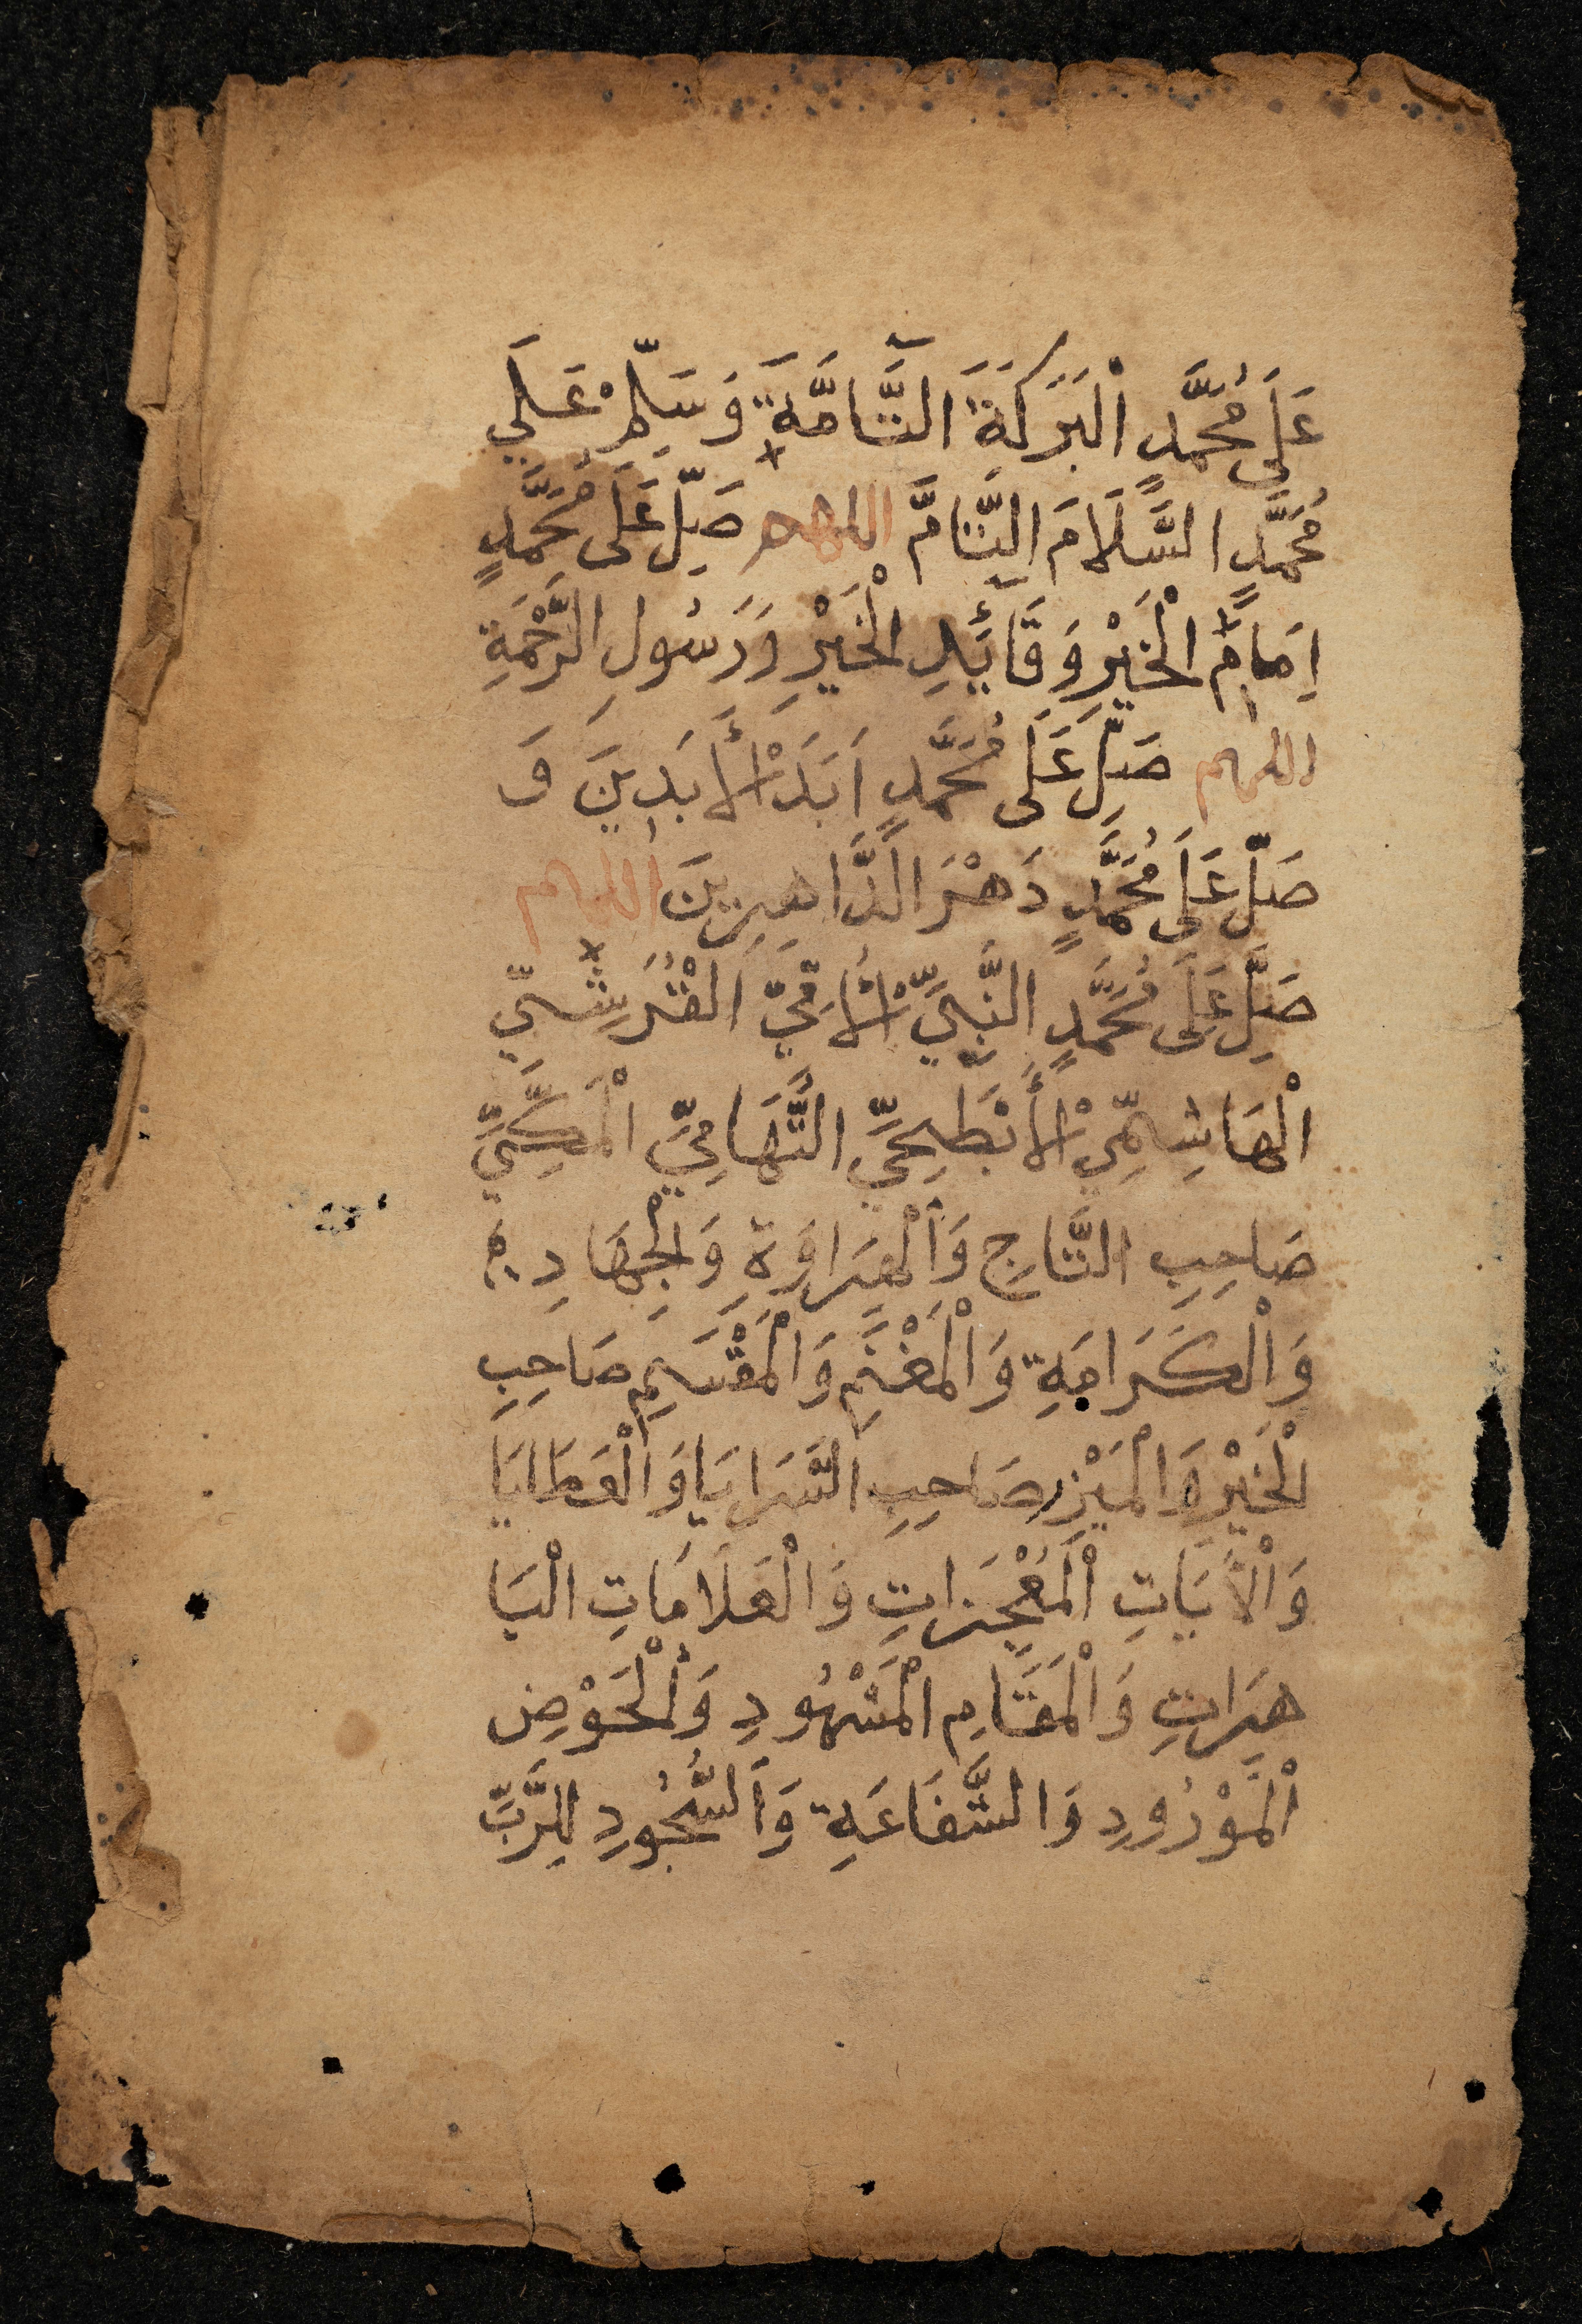 عَلَى مُحَمَّدٍ الْبَرَكَةَ التَّآمَّةَ وَسَلِّمْ عَلَي
مُحَمَّدٍ السَّلَامَ التَّامَّ اللهم صَلِّ عَلَى مُحَمَّدٍ
اِمَامِ الْخَيْرِ وَقَآئِدِ الْخَيْرِ وَرَسُولِ الرَّحْمَةِ
اللهم صَلِّ عَلَى مُحَمَّدٍ اَبَدَ الْأَبَدِينَ وَ
صَلِّ عَلَى مُحَمَّدٍ دَهْرَ الدَّاهِرِينَ اللهم
صَلِّ عَلَى مُحَمَّدٍ النَّبِيِّ الْأُمِّيِّ الْقُرَشِيِّ
الْهَاشِمِيِّ الْأَبْطَحِيِّ التَّهَامِيِّ الْمَكِّيِّ
صَاحِبِ التَّاجِ وَالْهِرَاوَةِ وَالْجِهَادِ
وَالْكَرَامَةِ وَالْمَغْنَمِ وَالْمَقْسَمِ صَاحِبِ
الْخَيْرِ وَالْمَيْرِ صَاحِبِ السَّرَايَا وَالْعَطَايَا
وَالْأَيَاتِ الْمُعْجِزَاتِ وَالْعَلَامَاتِ الْبَا
هِرَاتِ وَالْمَقَامِ الْمَشْهُودِ وَالْحَوْضِ
الْمَوْرُودِ وَالشَّفَاعَةِ وَالسُّجُودِ لِلرَّبِّ